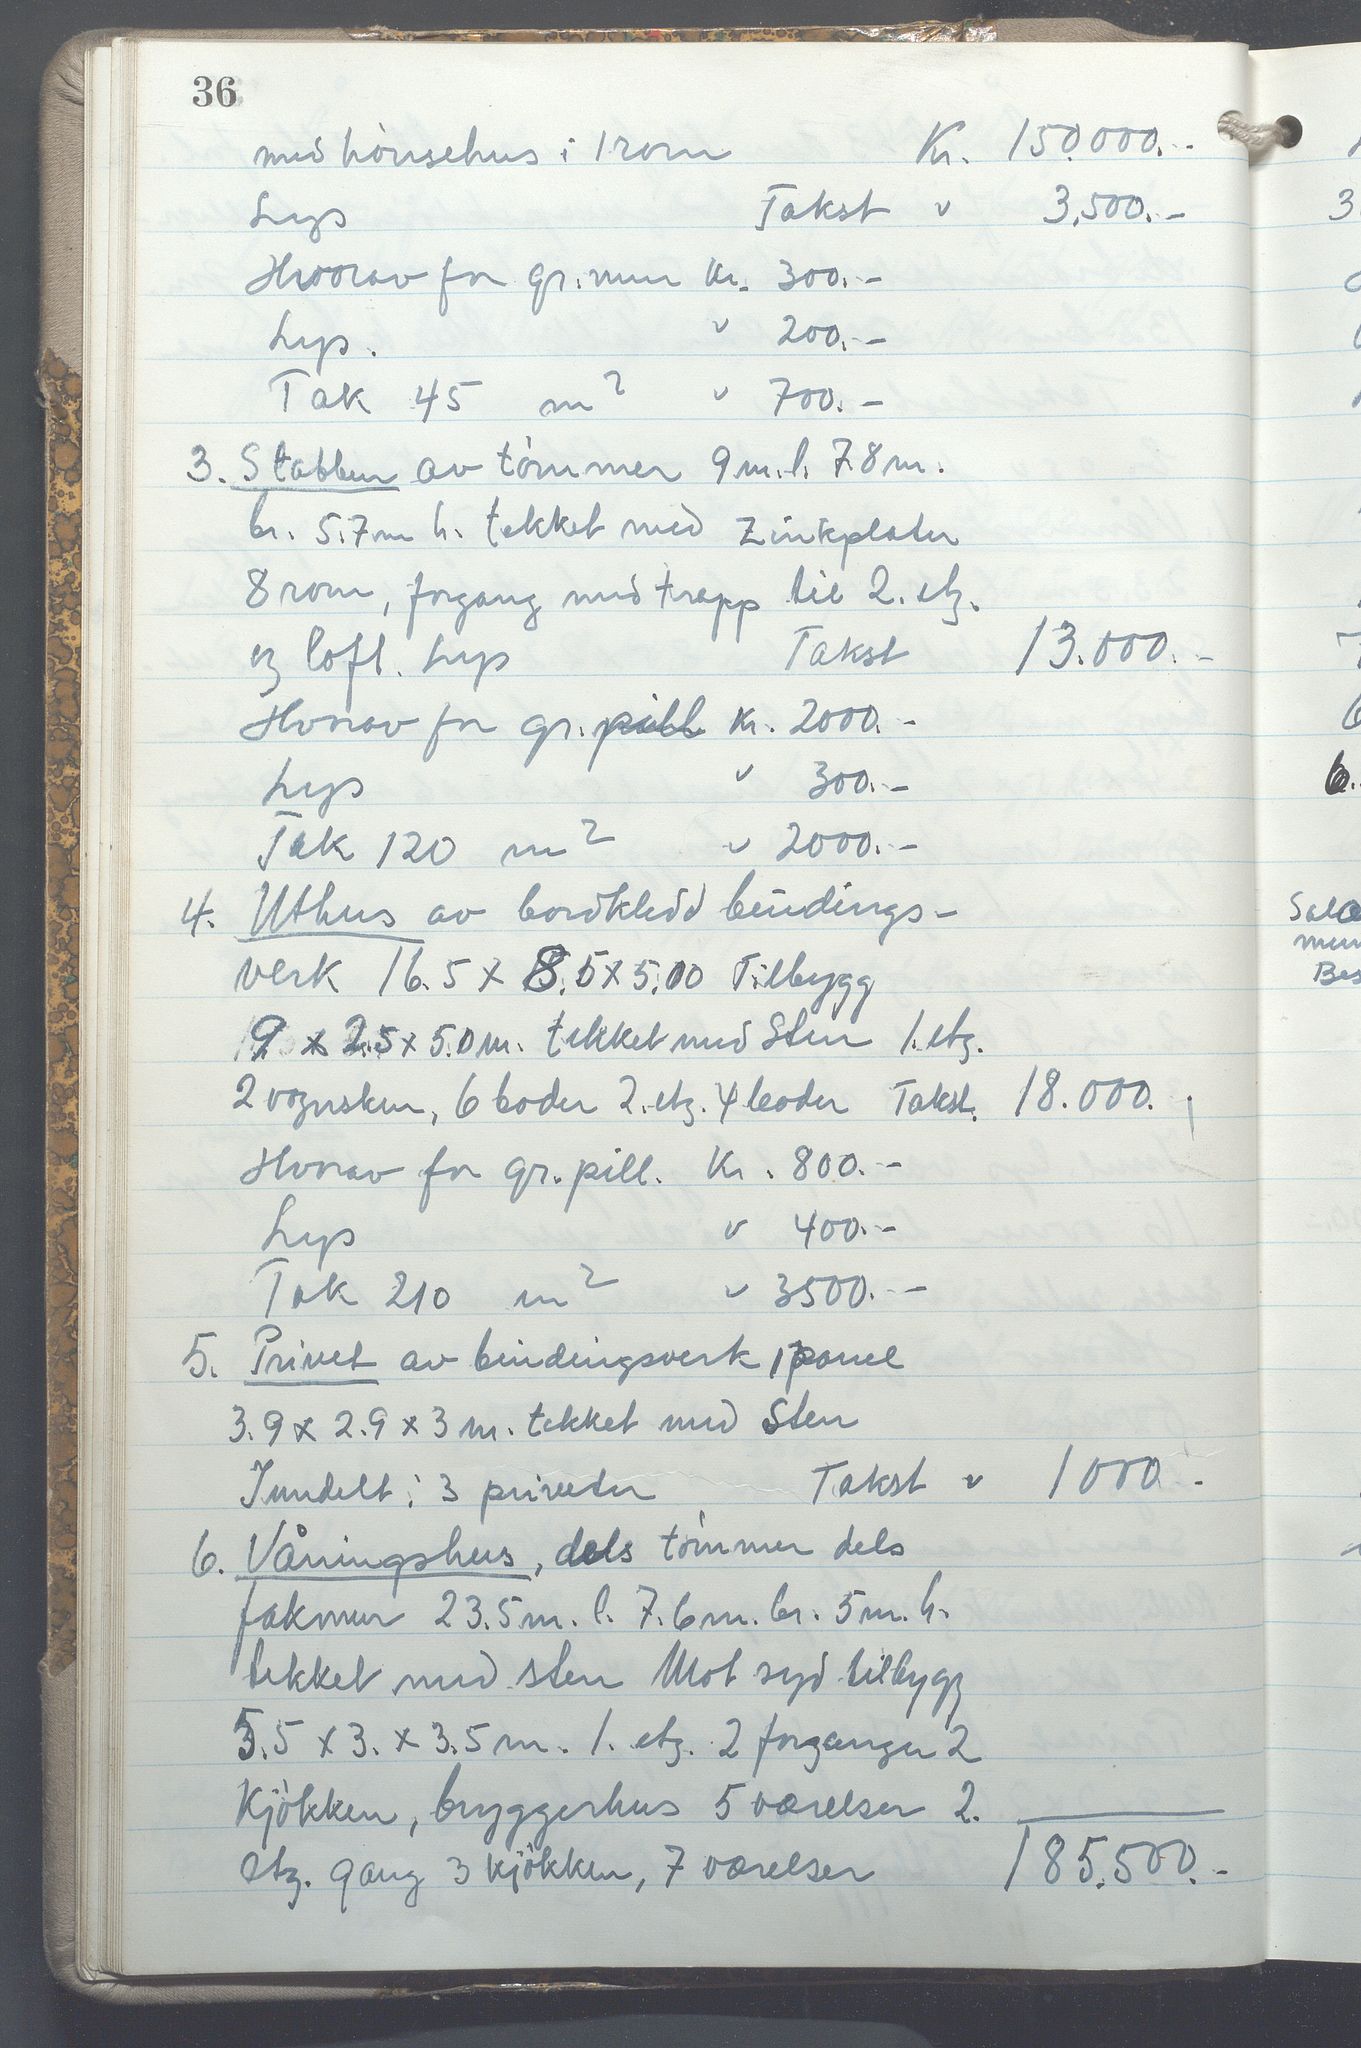 36
med hönsehus i 1 rom Kr. 150.000.-
Lys Takst " 3.500.-
Hvorav for gr.mur Kr. 300.-
Lys. " 200.-
Tak 45 m² " 700.-
3. Stabbur av tömmer 9 m. l. 7.8 m.
br. 5.7 m h. tekket med Zinkplater
8 rom, forgang med trapp til 2. etg.
og loft. Lys Takst 13.000.-
Hvorav for gr.pill Kr. 2000.-
Lys " 300.-
Tak 120 m² " 2000.-
4. Uthus av bordkledd bindings-
verk 16.5 x 8.5 x 5.00 Tilbygg
9 x 2.5 x 5.0 m. tekket med Sten 1. etg.
2 vognskur, 6 boder 2. etg. 4 boder Takst. 18.000.
Hvorav for gr.pill. Kr. 800.-
Lys " 400.-
Tak 210 m² " 3500.-
5. Privet av bindingsverk 1 panel
3.9 x 2.9 x 3 m. tekket med Sten
Inndelt i 3 priveter Takst " 1000.-
6. Våningshus, dels tömmer dels
fakmur 23.5 m. l. 7.6 m. br. 5 m. h.
tekket med sten Mot syd tilbygg
5.5 x 3. x 3.5 m. 1. etg. 2 forganger 2
Kjökken, bryggerhus 5 værelser 2.
etg. gang 3 kjökken, 7 værelser 185.500.-
3.
6.
Bes